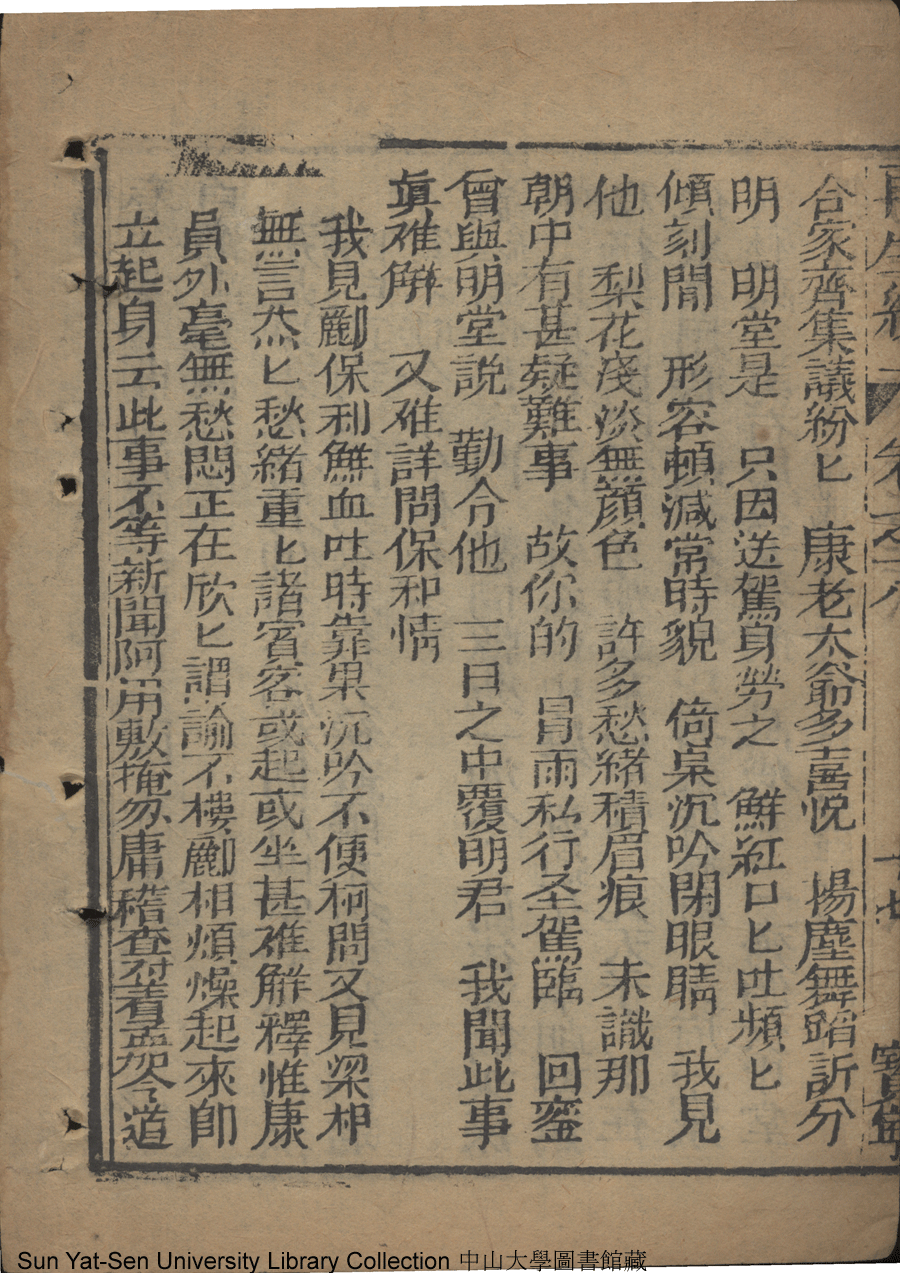 再生緣 卷之八 十七 寳寧
合家齊集議紛匕　康老太爺多喜悅　揚塵舞蹈訴分
明　明堂是　只因送駕身勞之　鮮紅口匕吐頻匕
傾刻間　形容頓減常時貌　倚桌沉吟閉眼睛　我見
他　梨花淺淡無顏色　許多愁緒積眉痕　未識那
朝中有甚疑難事　故你的　冒雨私行圣駕臨　回鑾
曾與明堂説　勤令他　三日之中覆明君　我聞此事
真难觧　又难詳問保和情
我見酈保利鮮血吐時靠果沉吟不便柯問又見梁相
無言烝匕愁緒重匕諸賓客或起或坐甚难解釋惟康
員外毫無愁悶正在欣匕謂諭不樓酈相煩燥起來即
立起身云此事不等新聞阿用敷掩勿庸稽查对着孟架令道
Sun Yat-Sen University Library Collection 中山大學圖書館藏